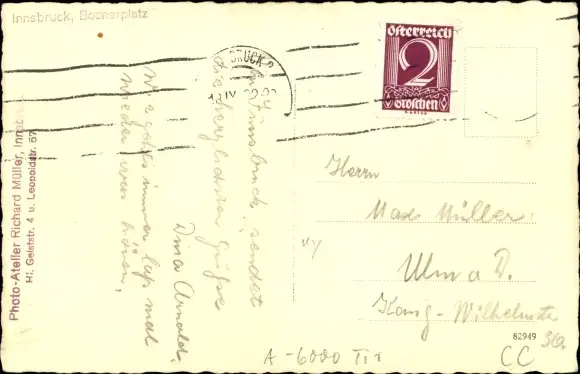 Innsbruck, Boznerplatz
Photo-Atelier Richard Müller, Innsbruck
Hl. Geiststr. 4 u. Leopoldstr. 57
Österreich
2
Groschen
BRUCK 2
IV
Innsbruck sendet
die herzlichsten Grüße
Dina Arnold.
Wie geht's immer laß mal
wieder was hören,
Herrn
Max Müller
Ulm a D.
König-Wilhelmstr
82949
A-6000 II 1
CC